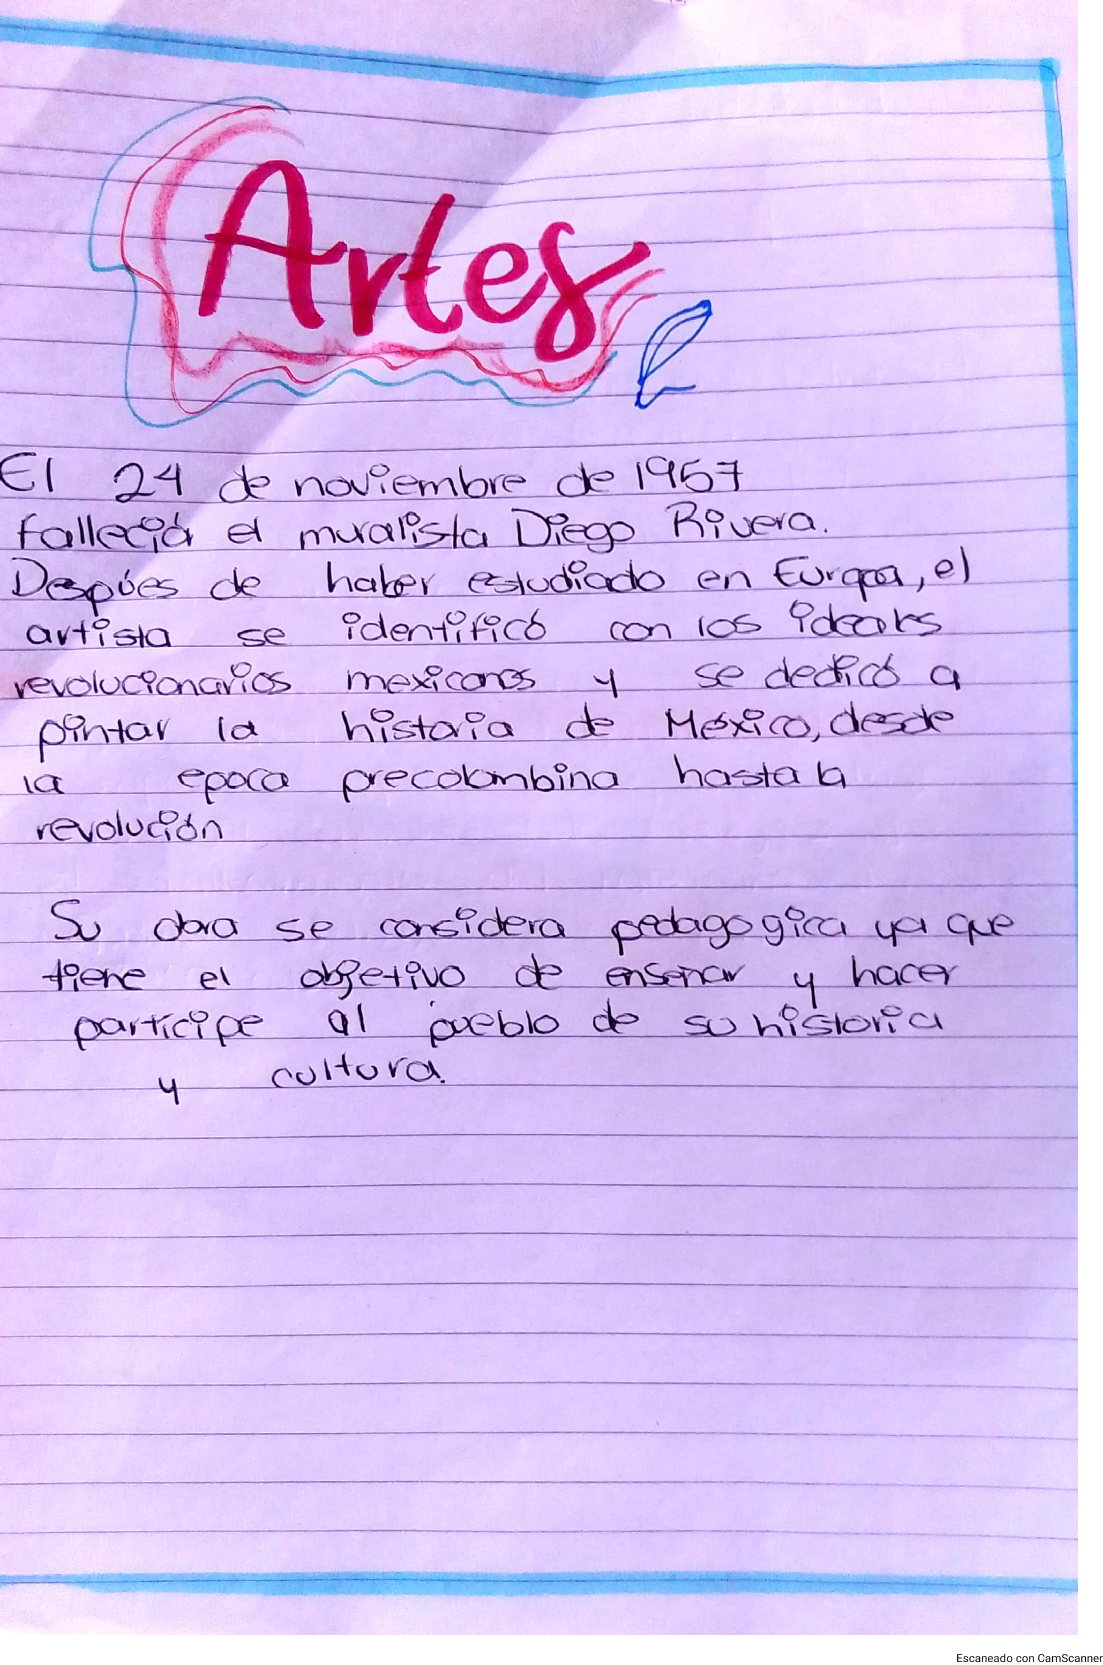 Artes
El 24 de noviembre de 1957
falleció el muralista Diego Rivera.
Despúes de haber estudiado en Europa, el
artista se identificó con los ideales
revolucionarios mexicanos y se dedicó a
pintar la historia de México, desde
la epoca precolombina hasta la
revolución
Su obra se considera pedagogica ya que
tiene el objetivo de enseñar y hacer
participe al pueblo de su historia
y cultura.
Escaneado con CamScanner